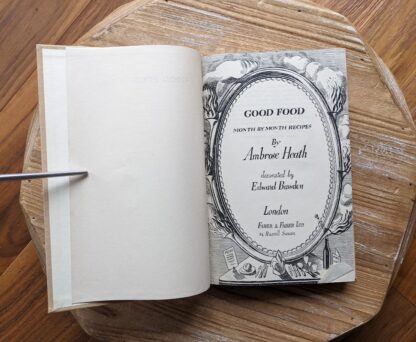 GOOD FOOD
MONTH BY MONTH RECIPES
By
Ambrose Heath
decorated by
Edward Bawden
London
FABER & FABER LTD
24 Russell Square